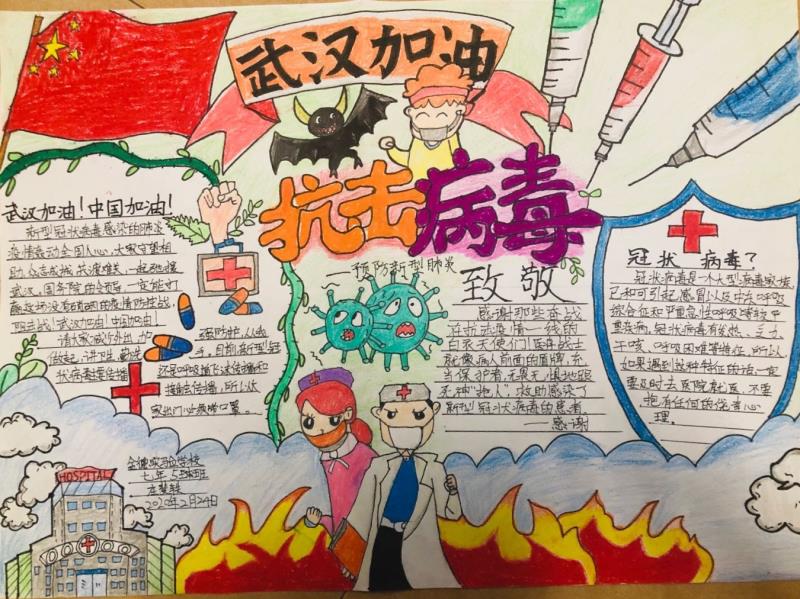 武汉加油
抗击病毒
——预防新型肺炎
武汉加油!中国加油!
新型冠状病毒感染的肺炎
疫情轰动全国人心,大家守望相
助,众志成城,共渡难关,一起驰援
武汉,国务院的领导,一定能打
赢这场没有硝烟的疫情防控战,
阻击战!武汉加油!中国加油!
请大家减少外出,勿
做起,讲卫生,勤洗
状病毒
传播
强防护,从我
手,目前,新型冠
还是呼吸道飞沫传播和
接触传播,所以大
家出门必须戴口罩。
七年
班
2020年2月24日
HOSPITAL
致敬
感谢那些奋战
在抗击疫情一线的
白衣天使们!医务战士
就像病人前面的盾牌,充
当保护者,无畏无惧地跟
死神“抢人”,救助感染了
新型冠状病毒的患者
——感谢
冠状病毒?
冠状病毒是一个大型病毒家族,
已知可引起感冒以及中东呼吸
综合征和严重急性呼吸综合征
重疾病,冠状病毒有发热、乏力、
干咳、呼吸困难等特征,所以
如果遇到这种特征的话,一定
要及时去医院就医,不要
抱有任何的侥幸心
理。